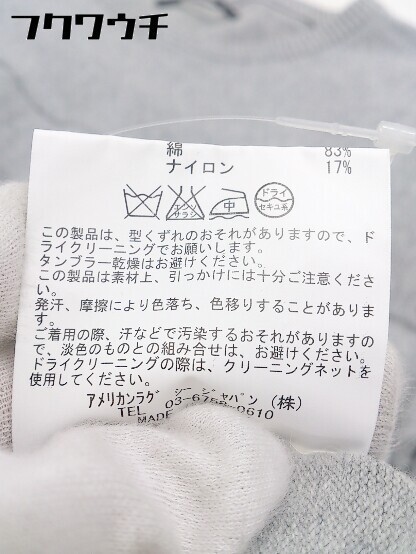 フクワウチ
綿 83%
ナイロン 17%
エンソ
サラシ
中
ドライ
セキユ系
この製品は、型くずれのおそれがありますので、ド
ライクリーニングでお願いします。
タンブラー乾燥はお避けください。
この製品は素材上、引っかけには十分ご注意くださ
い。
発汗、摩擦により色落ち、色移りすることがありま
す。
ご着用の際、汗などで汚染するおそれがありますの
で、淡色のものとの組み合せは、お避けください。
ドライクリーニングの際は、クリーニングネットを
使用してください。
アメリカンラグ シー ジャパン (株)
TEL 03-6758-0610
MADE